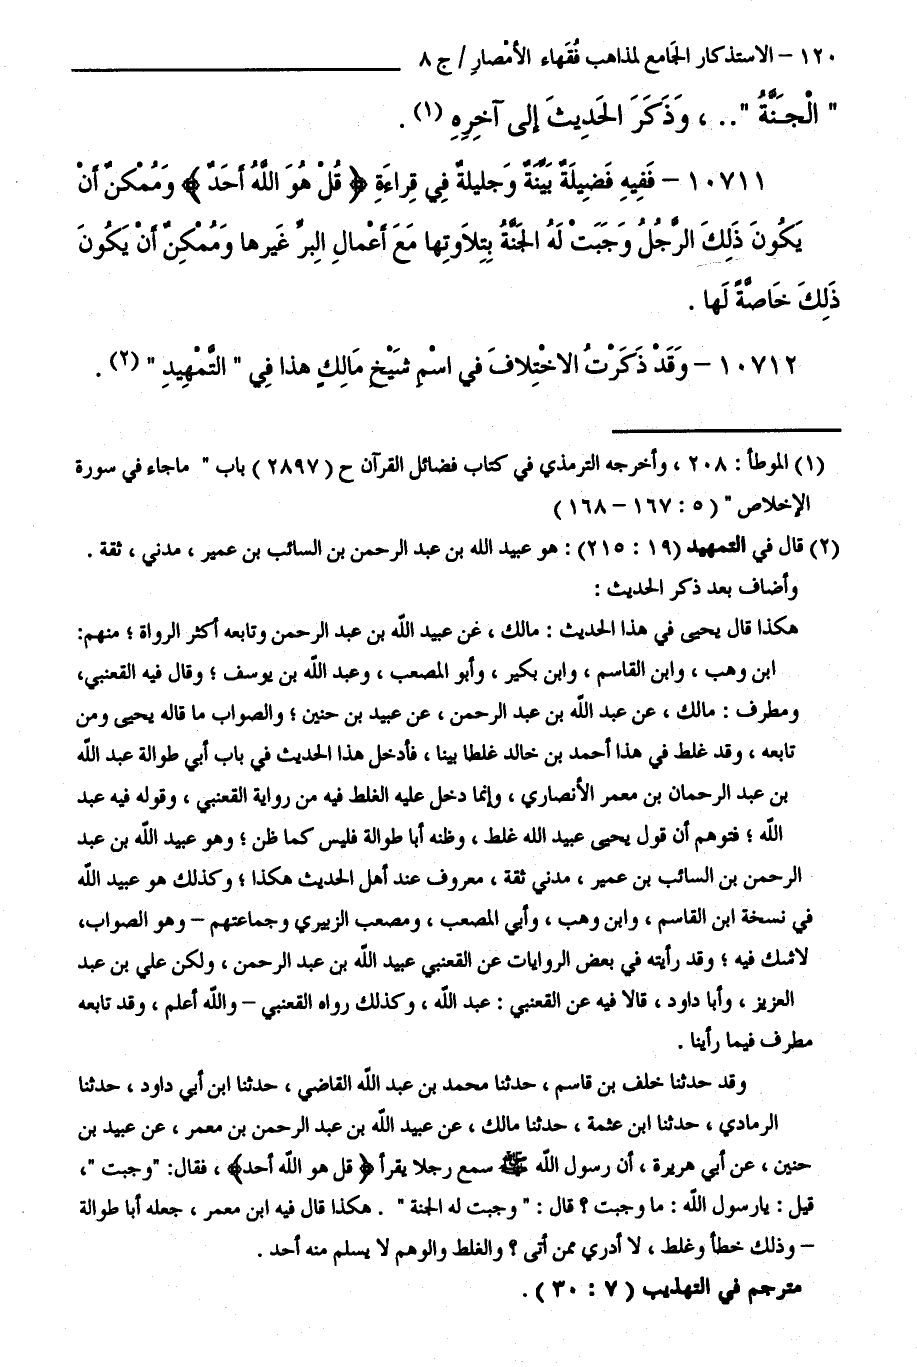 ١٢٠ – الاستذكار الجَامع لمذاهب فُقَهاء الأمْصارِ / ج ٨
" الْجـَنَّةُ " .. ، وَذَكَرَ الحَدِيثَ إلى آخِرِهِ (١) .
١٠٧١١ – فَفِيهِ فَضِيلَةٌ بَيِّنَةٌ وَجليلةٌ فِي قِراءَةِ ﴿ قُلْ هُوَ اللَّهُ أحَدٌ ﴾ وَمُمْكنٌ أنْ
يَكُونَ ذَلِكَ الرَّجلُ وَجَبَتْ لَهُ الجَنَّةُ بِتِلاَوتِها مَعَ أعْمالِ البِرِّ غَيرِها وَمُمْكِنٌ أنْ يَكُونَ
ذَلِكَ خَاصَّةً لَها .
١٠٧١٢ – وَقَدْ ذَكَرْتُ الاخْتِلافَ في اسْمِ شَيْخِ مَالِكٍ هذا فِي " التَّمْهِيدِ " (٢) .
(١) الموطأ : ٢٠٨ ، وأخرجه الترمذي في كتاب فضائل القرآن ح ( ٢٨٩٧ ) باب " ماجاء في سورة
الإخلاص " ( ٥ : ١٦٧ – ١٦٨ )
(٢) قال في التمهيد (١٩ : ٢١٥) : هو عبيد الله بن عبد الرحمن بن السائب بن عمير ، مدني ، ثقة .
وأضاف بعد ذكر الحديث :
هكذا قال يحيى في هذا الحديث : مالك ، عن عبيد اللّه بن عبد الرحمن وتابعه أكثر الرواة ؛ منهم:
ابن وهب ، وابن القاسم ، وابن بكير ، وأبو المصعب ، وعبد اللّه بن يوسف ؛ وقال فيه القعنبي،
ومطرف : مالك ، عن عبد اللّه بن عبد الرحمن ، عن عبيد بن حنين ؛ والصواب ما قاله يحيى ومن
تابعه ، وقد غلط في هذا أحمد بن خالد غلطا بينا ، فأدخل هذا الحديث في باب أبي طوالة عبد اللّه
بن عبد الرحمان بن معمر الأنصاري ، وإنما دخل عليه الغلط فيه من رواية القعنبي ، وقوله فيه عبد
اللّه ؛ فتوهم أن قول يحيى عبيد الله غلط ، وظنه أبا طوالة فليس كما ظن ؛ وهو عبيد اللّه بن عبد
الرحمن بن السائب بن عمير ، مدني ثقة ، معروف عند أهل الحديث هكذا ؛ وكذلك هو عبيد اللّه
في نسخة ابن القاسم ، وابن وهب ، وأبي المصعب ، ومصعب الزبيري وجماعتهم – وهو الصواب،
لاشك فيه ؛ وقد رأيته في بعض الروايات عن القعنبي عبيد اللّه بن عبد الرحمن ، ولكن علي بن عبد
العزيز ، وأبا داود ، قالا فيه عن القعنبي : عبد اللّه ، وكذلك رواه القعنبي – واللّه أعلم ، وقد تابعه
مطرف فيما رأينا .
وقد حدثنا خلف بن قاسم ، حدثنا محمد بن عبد اللّه القاضي ، حدثنا ابن أبي داود ، حدثنا
الرمادي ، حدثنا ابن عثمة ، حدثنا مالك ، عن عبيد اللّه بن عبد الرحمن بن معمر ، عن عبيد بن
حنين ، عن أبي هريرة ، أن رسول اللّه ﷺ سمع رجلا يقرأ ﴿ قل هو اللّه أحد﴾ ، فقال: "وجبت "،
قيل : يارسول اللّه : ما وجبت ؟ قال : " وجبت له الجنة " . هكذا قال فيه ابن معمر ، جعله أبا طوالة
– وذلك خطأ وغلط ، لا أدري ممن أتى ؟ والغلط والوهم لا يسلم منه أحد .
مترجم في التهذيب ( ٧ : ٣٠ ) .